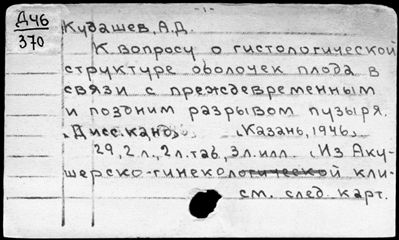 - 1 -
Дч6
370
Кудашев, А.Д.
К вопросу о гистологической
структуре оболочек плода в
связи с преждевременным
и поздним разрывом пузыря.
Дисс. канд. Казань, 1946,
29, 2 л., 2 л. таб, 3 л. илл. (Из Аку-
шерско-гинекологической кли-
см. след. карт.